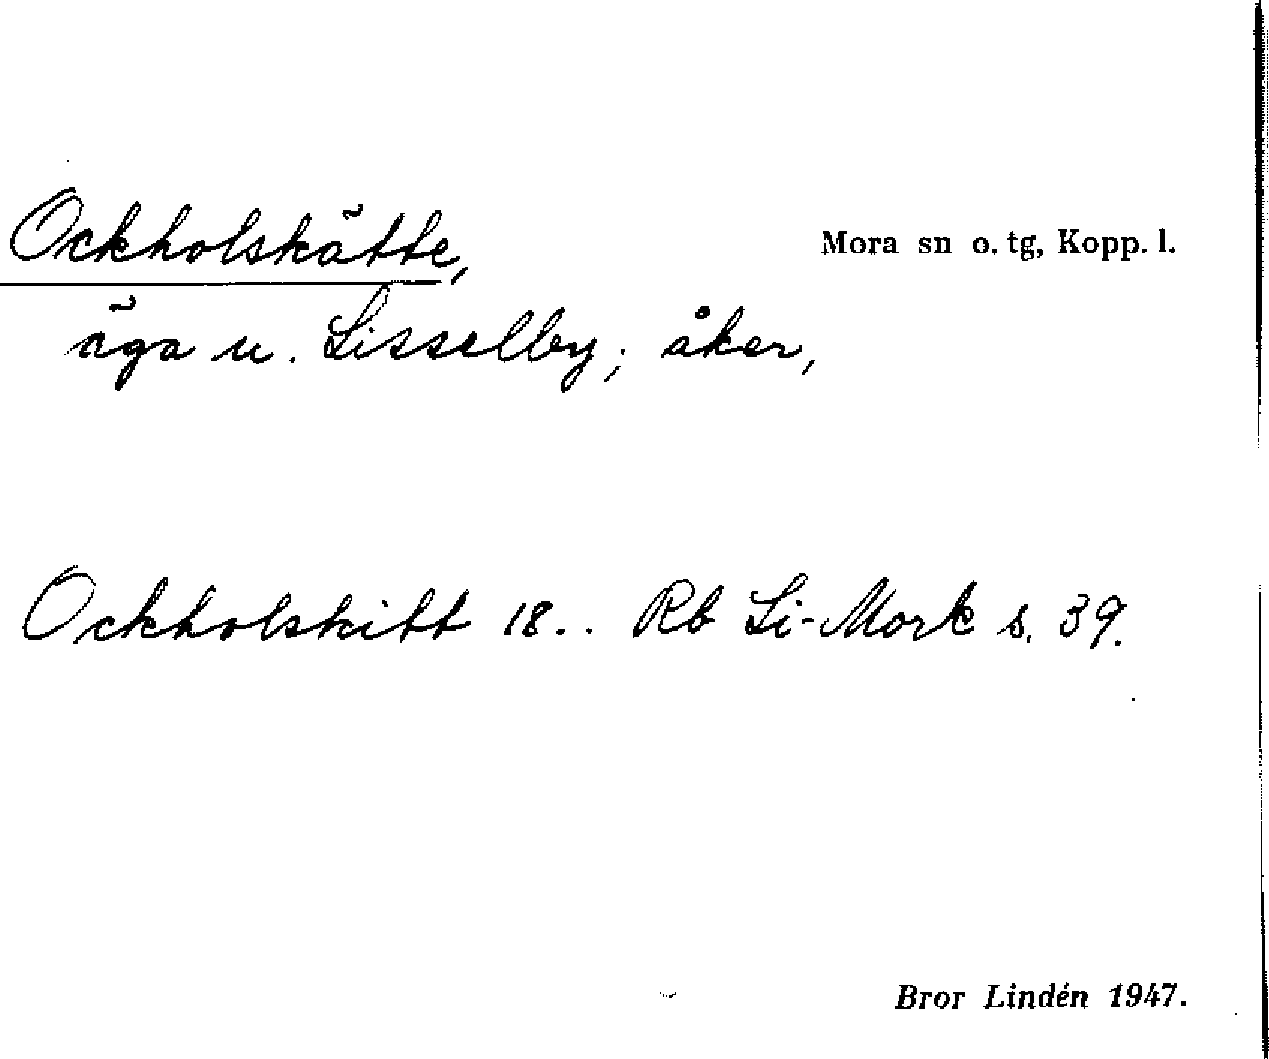 Ockholskätte,
Mora sn o. tg, Kopp. l.
äga u. Lisselby; åker,
Ockholskitt 18.. Rb Li-Mork s. 39.
Bror Lindén 1947.